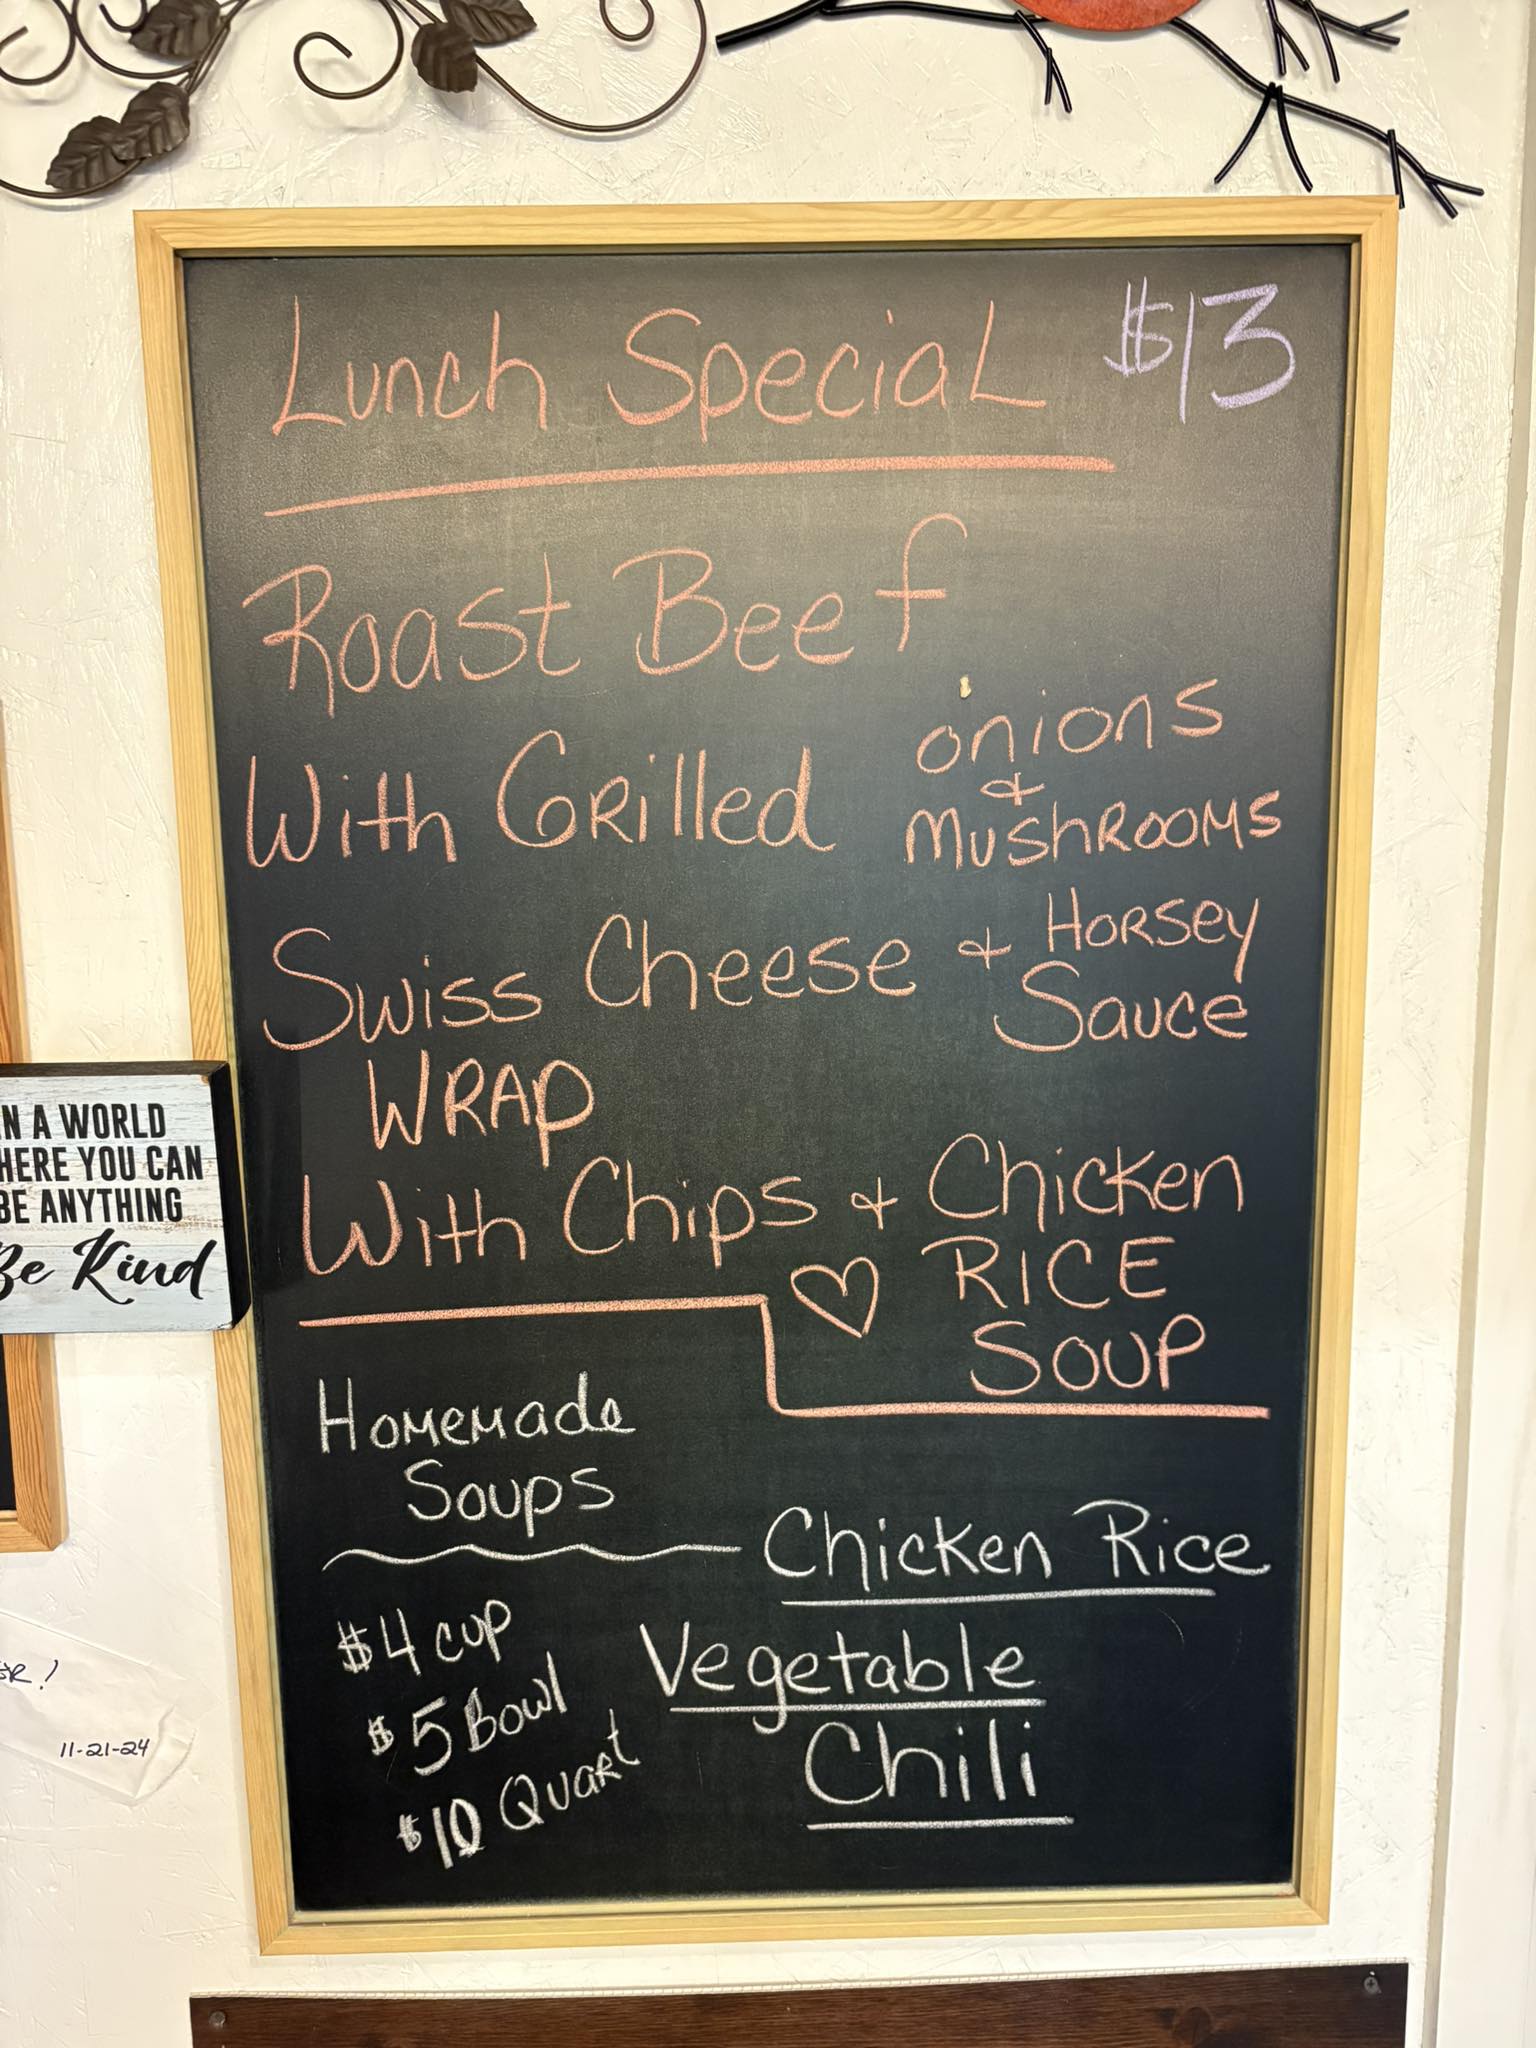 Lunch Special $13
Roast Beef
With Grilled onions
&
Mushrooms
Swiss Cheese & Horsey
Sauce
Wrap
With Chips & Chicken
Rice
Soup
Homemade
Soups
$4 cup
$5 Bowl
$10 Quart
Chicken Rice
Vegetable
Chili
N A WORLD
HERE YOU CAN
BE ANYTHING
Be Kind
11-21-24